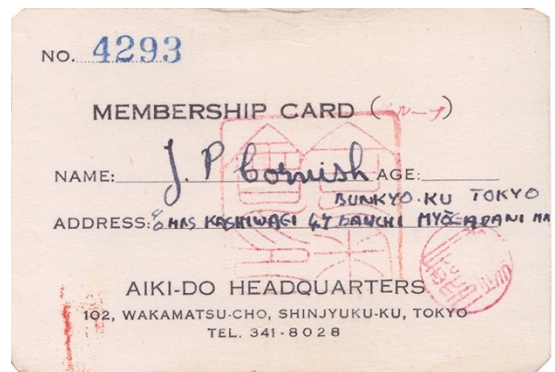 NO. 4293
MEMBERSHIP CARD (ループ)
NAME: J. P Cornish AGE:
BUNKYO-KU TOKYO
ADDRESS: c/o MRS KASHIWAGI 47 MYOGADANI
AIKI-DO HEADQUARTERS
102, WAKAMATSU-CHO, SHINJYUKU-KU, TOKYO
TEL. 341-8028